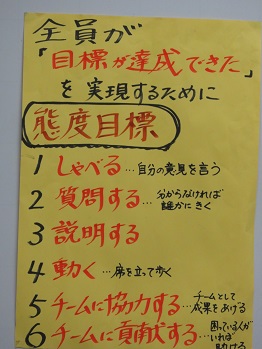 全員が
「目標が達成できた」
を実現するために
態度目標
1 しゃべる…自分の意見を言う
2 質問する…分からなければ
誰かにきく
3 説明する
4 動く…席を立って歩く
5 チームに協力する…チームとして
成果をあげる
6 チームに貢献する…困っている人が
いれば
助ける